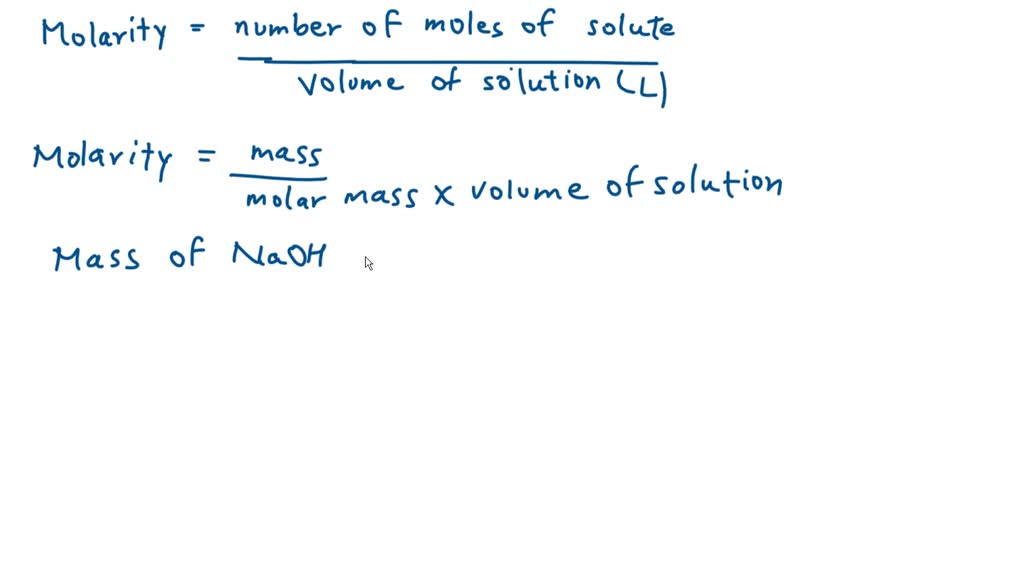 Molarity = number of moles of solute
volume of solution (L)
Molarity = mass
molar mass x volume of solution
Mass of NaOH